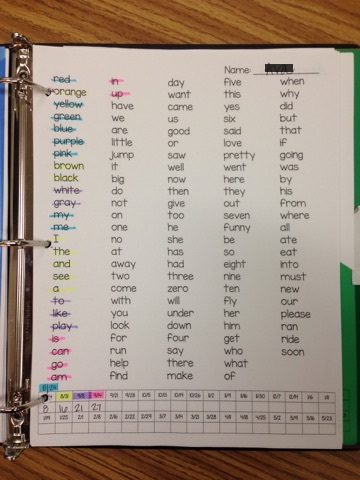 Name:
red in day five when
orange up want this why
yellow have came yes did
green we us six but
blue are good said that
purple little or love if
pink jump saw pretty going
brown it well went was
black big now here by
white do then they his
gray not give out from
my on too seven where
me one he funny all
I no she be ate
the at has so eat
and away had eight into
see two three nine must
a come zero ten new
to with will fly our
like you under her please
play look down him ran
is for four get ride
can run say who soon
go help there what
am find make of
8/24
8/31 9/14 9/21 9/28 10/5 10/26 11/2 11/9 11/16 11/30 12/7
8 16 21 27
1/19 1/25 2/1 2/8 2/16 2/22 2/29 3/7 3/14 3/21 3/28 4/18 4/25 5/2 5/9 5/16 5/23